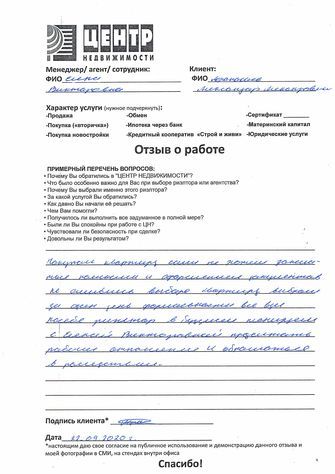 ЦЕНТР
НЕДВИЖИМОСТИ
Менеджер/ агент/ сотрудник: Клиент:
ФИО Елена ФИО
Викторовна Александр Александрович
Характер услуги (нужное подчеркнуть):
-Продажа -Обмен -Сертификат
-Покупка («вторичка») -Ипотека через банк -Материнский капитал
-Покупка новостройки -Кредитный кооператив «Строй и живи» -Юридические услуги
Отзыв о работе
ПРИМЕРНЫЙ ПЕРЕЧЕНЬ ВОПРОСОВ:
• Почему Вы обратились в "ЦЕНТР НЕДВИЖИМОСТИ"?
• Что было особенно важно для Вас при выборе риэлтора или агентства?
• Почему Вы выбрали именно этого риэлтора?
• За какой услугой Вы обратились?
• Как давно Вы начали её решать?
• Чем Вам помогли?
• Получилось ли выполнить все задуманное в полной мере?
• Были ли Вы спокойны при работе с ЦН?
• Чувствовали ли безопасность при сделке?
• Довольны ли Вы результатом?
Покупали квартиру сами не хотели
поисками и оформлением документов
Не ошиблись выбора квартиры выбрали
за один день все
риэлтор в будущем
с Еленой Викторовной продолжать
рабочие отношения и обращаться
Подпись клиента*
Дата 22.09.2020 г.
*настоящим даю свое согласие на публичное использование и демонстрацию данного отзыва и
моей фотографии в СМИ, на стендах внутри офиса
Спасибо!